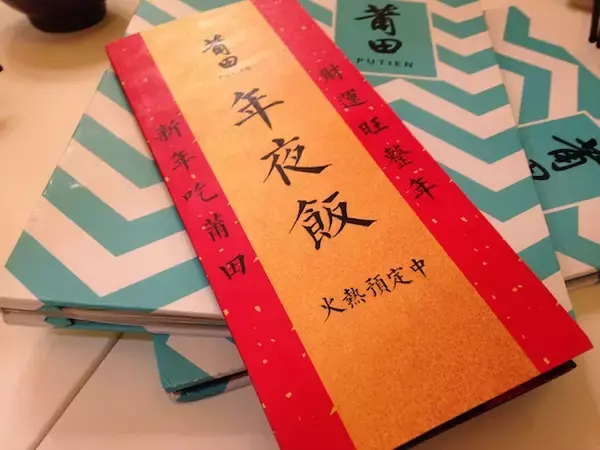 莆田
PUTIEN
年夜飯
火熱預定中
新年吃莆田
財運旺整年
莆田
PUTIEN
莆田